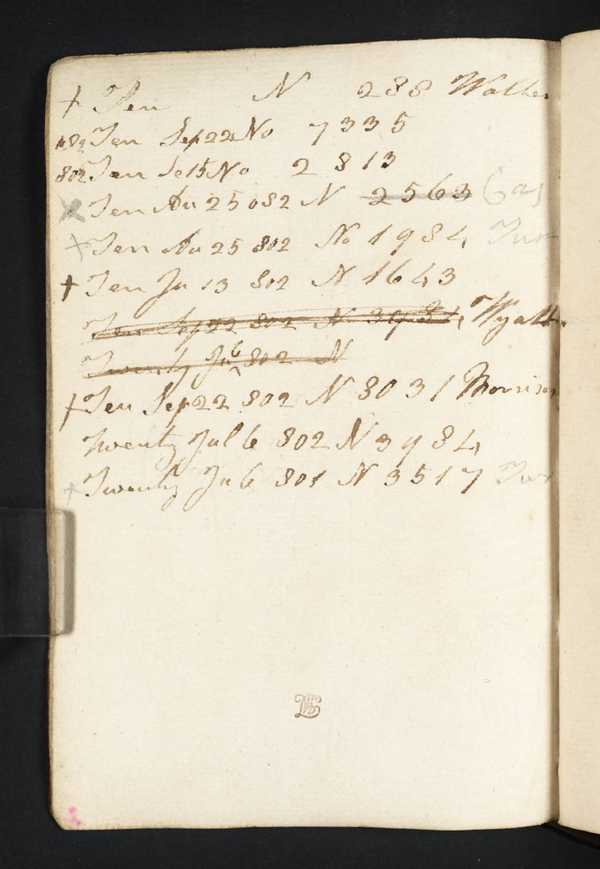 + Ten N 288 Walker
802 Ten Sep 22 No 7335
802 Ten Se 15 No 2813
x Ten Au 25 082 N 2563
+ Ten Au 25 802 No 1984
+ Ten Ju 13 802 N 1643
Ten Sep 22 802 N Wyatt
Twenty Ju 6 802 N
+ Ten Sep 22 802 N 8031 Morrison
Twenty Jul 6 802 N 3984
+ Twenty Ju 6 801 N 3517